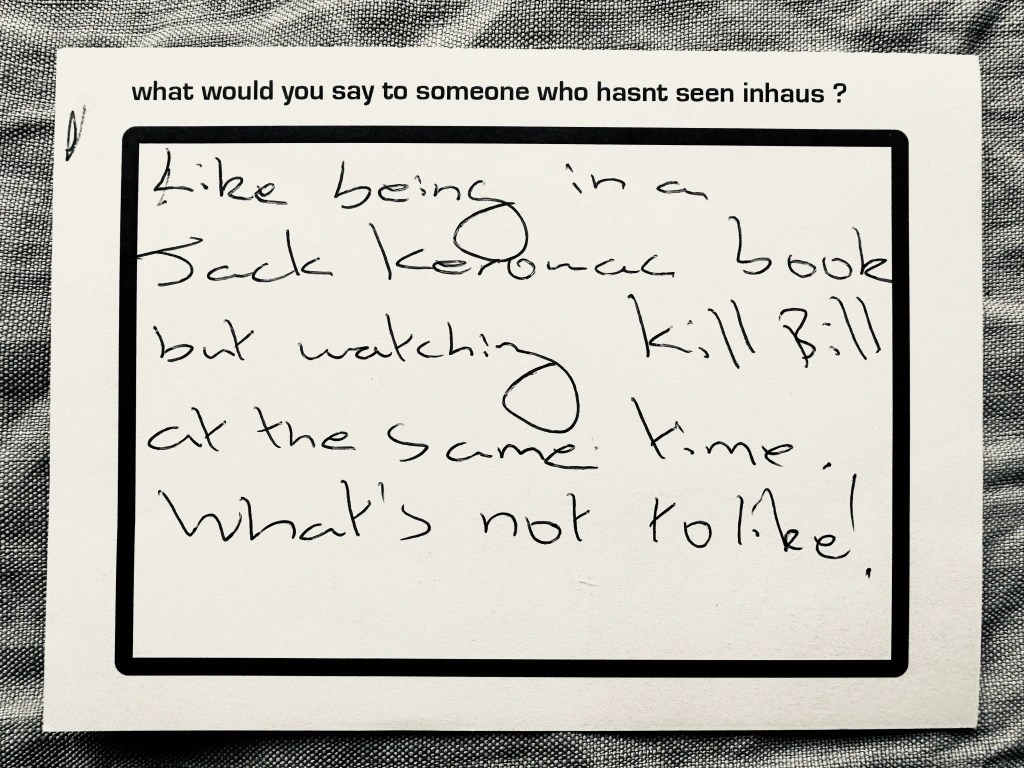 what would you say to someone who hasnt seen inhaus ?
Like being in a
Jack Kerouac book
but watching Kill Bill
at the same time.
What's not to like!